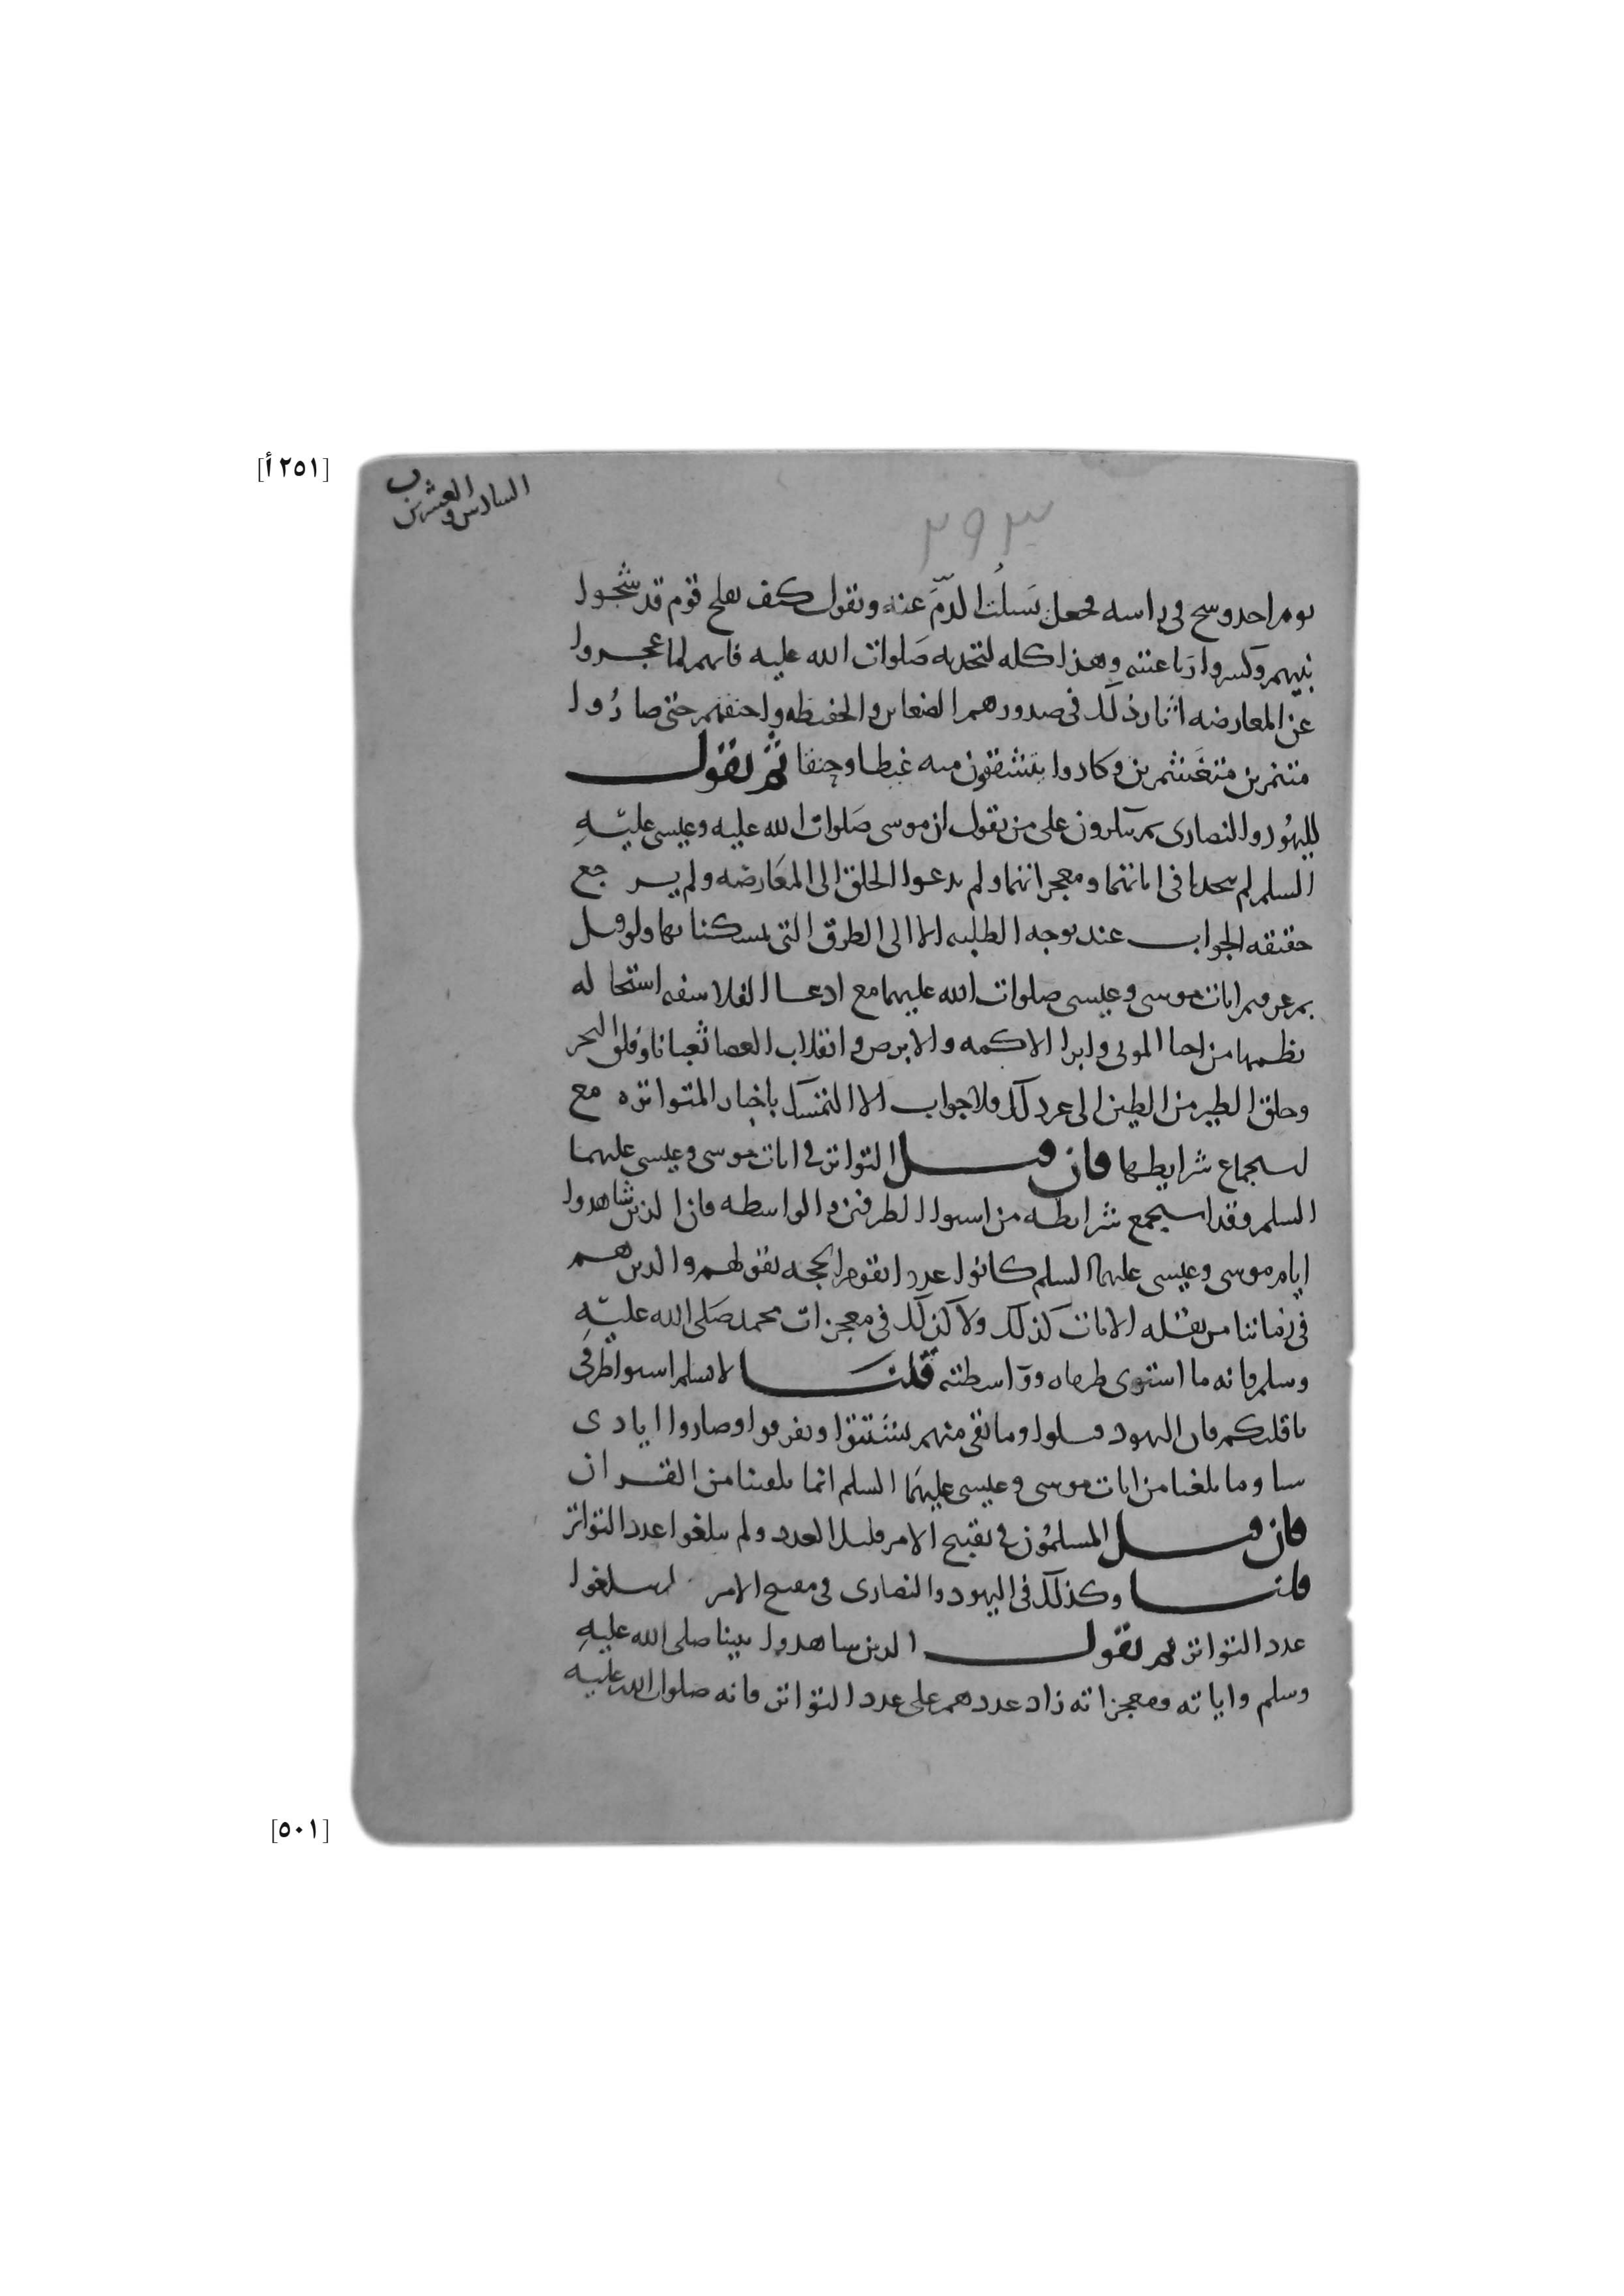 [٢٥١ أ]
السادس والعشرين
٢٩٣
يوم احد وشج في راسه فجعل يسلت الدمَ عنه ويقول كيف يفلح قوم قد شجوا
نبيهم وكسروا رباعيته وهذا كله لتحديه صلوات الله عليه فانهم لما عجزوا
عن المعارضه اثار ذلك في صدورهم الضغاين والحفيظه واحنقهم حتى صاروا
متنمرين متغشمرين وكادوا يتشققون منه غيظا وحنقا ثم نقول
لليهود والنصارى بم تنكرون على من يقول ان موسى صلوات الله عليه وعيسى عليه
السلم لم يتحديا في اياتهما ومعجزاتهما ولم يدعوا الخلق الى المعارضه ولم يرجع
حقيقه الجواب عند توجه الطلبه الا الى الطرق التي تمسكنا بها ولو قيل
بم عرفتم ايات موسى وعيسى صلوات الله عليهما مع ادعا الفلاسفه استحاله
نظمها من احيا الموتى وابرا الاكمه والابرص وانقلاب العصا ثعبانا وفلق البحر
وخلق الطير من الطين الى غير ذلك فلا جواب الا التمسك باخبار المتواتره مع
استجماع شرايطها فان قيل التواتر في ايات موسى وعيسى عليهما
السلم وقد استجمع شرايطه من استوا الطرفين والواسطه فان الذين شاهدوا
ايام موسى وعيسى عليهما السلم كانوا عددا تقوم الحجه بقولهم والذين هم
في زماننا من نقله الايات كذلك ولا كذلك في معجزات محمد صلى الله عليه
وسلم فانه ما استوى طرفاه وواسطته قلنا لا نسلم استوا طرفي
ناقليكم فان اليهود قتلوا وما بقي منهم تشتتوا وتفرقوا وصاروا ايادى
سبا وما بلغنا من ايات موسى وعيسى عليهما السلم انما بلغنا من القران
فان قيل المسلمون في نقيح الامر قليل العدد ولم يبلغوا عدد التواتر
قلنا وكذلك في اليهود والنصارى في الامر لم يبلغوا
عدد التواتر ثم نقول الذين شاهدوا نبينا صلى الله عليه
وسلم واياته ومعجزاته زاد عددهم على عدد التواتر فانه صلوات الله عليه
[٥٠١]